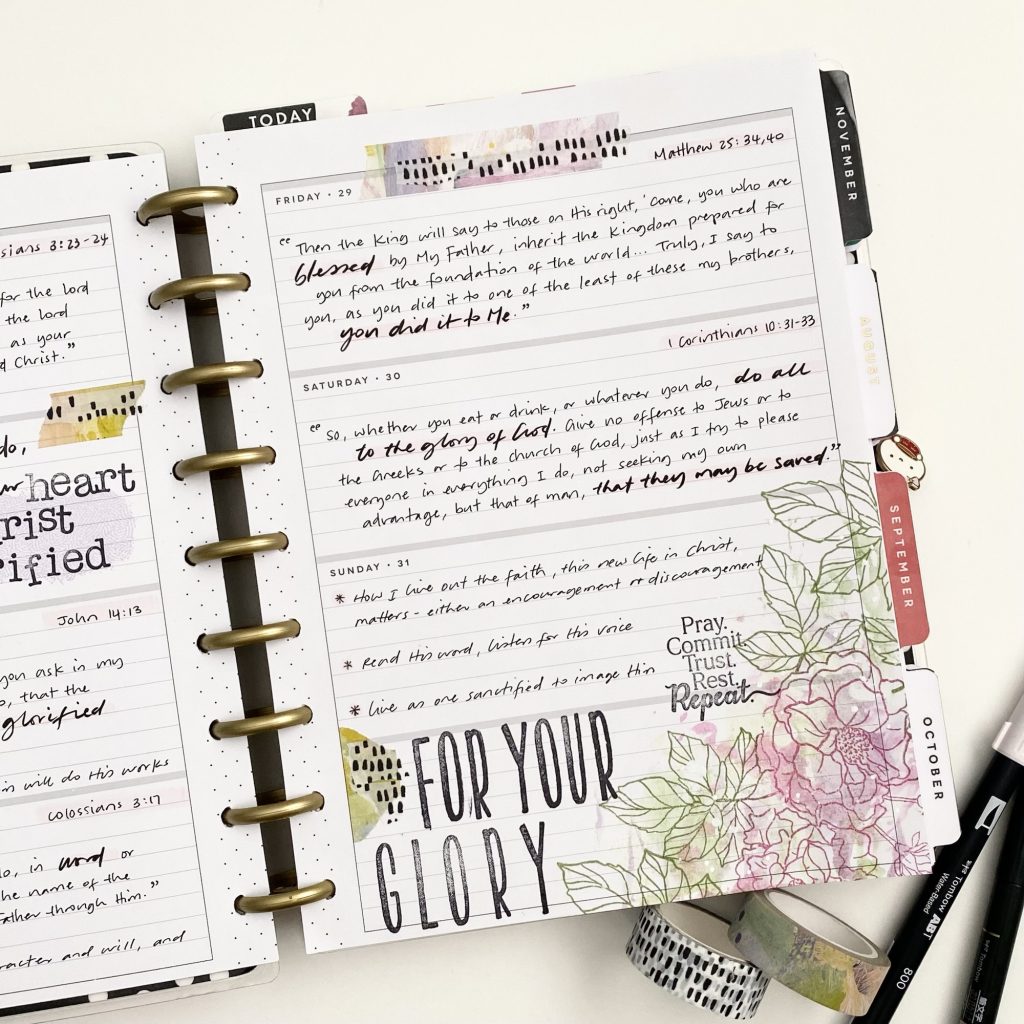 TODAY
sians 3:23-24
for the lord
the lord
as your
d Christ."
do,
ur heart
rist
rified
John 14:13
you ask in my
o, that the
glorified
in will do His works
Colossians 3:17
do, in word or
he name of the
Father through Him."
racter and will, and
Matthew 25:34,40
FRIDAY • 29
"Then the King will say to those on His right, 'Come, you who are
blessed by My Father, inherit the Kingdom prepared for
you from the foundation of the world... Truly, I say to
you, as you did it to one of the least of these my brothers,
you did it to Me."
1 Corinthians 10:31-33
SATURDAY • 30
"So, whether you eat or drink, or whatever you do, do all
to the glory of God. Give no offense to Jews or to
the Greeks or to the church of God, just as I try to please
everyone in everything I do, not seeking my own
advantage, but that of man, that they may be saved."
SUNDAY • 31
* How I live out the faith, this new life in Christ,
matters - either an encouragement or discouragement
* Read His word, listen for His voice
* Live as one sanctified to image Him
Pray.
Commit.
Trust.
Rest.
Repeat.
FOR YOUR
GLORY
NOVEMBER
AUGUST
SEPTEMBER
OCTOBER
Tombow ABT
Water-Based
800